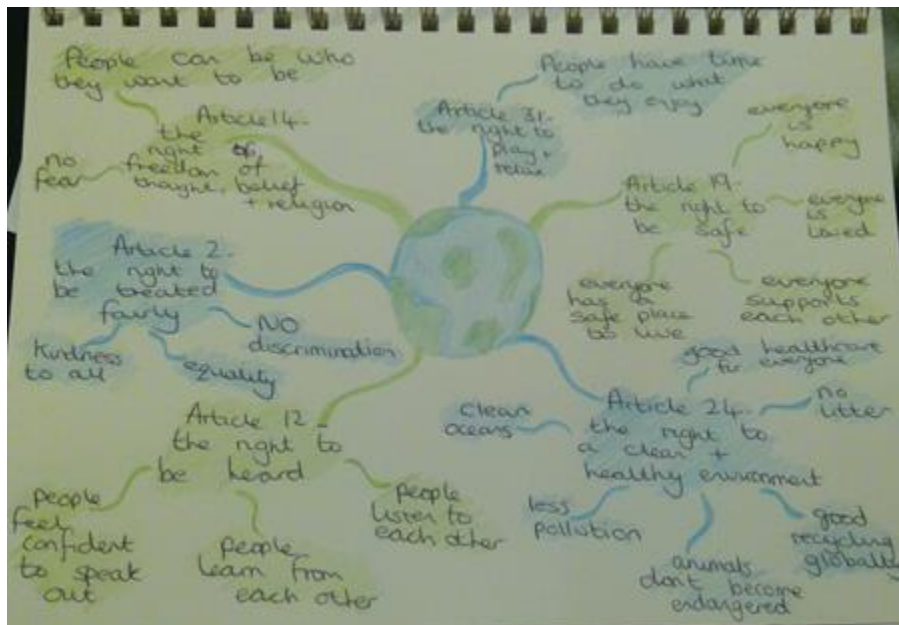 People can be who
they want to be
Article 14-
the
right of
freedom of
thought, belief
+ religion
no
fear
Article 31-
the right to
play +
relax
People have time
to do what
they enjoy
Article 19-
the right to
be safe
everyone
is
happy
everyone
is
loved
everyone
has a
safe place
to live
everyone
supports
each other
Article 2-
the right to
be treated
fairly
Kindness
to all
equality
NO
discrimination
Article 12-
the right to
be heard
people
feel
confident
to speak
out
people
learn from
each other
people
listen to
each other
Article 24-
the right to
a clean +
healthy environment
good healthcare
for everyone
no
litter
clean
oceans
less
pollution
animals
don't become
endangered
good
recycling
globally